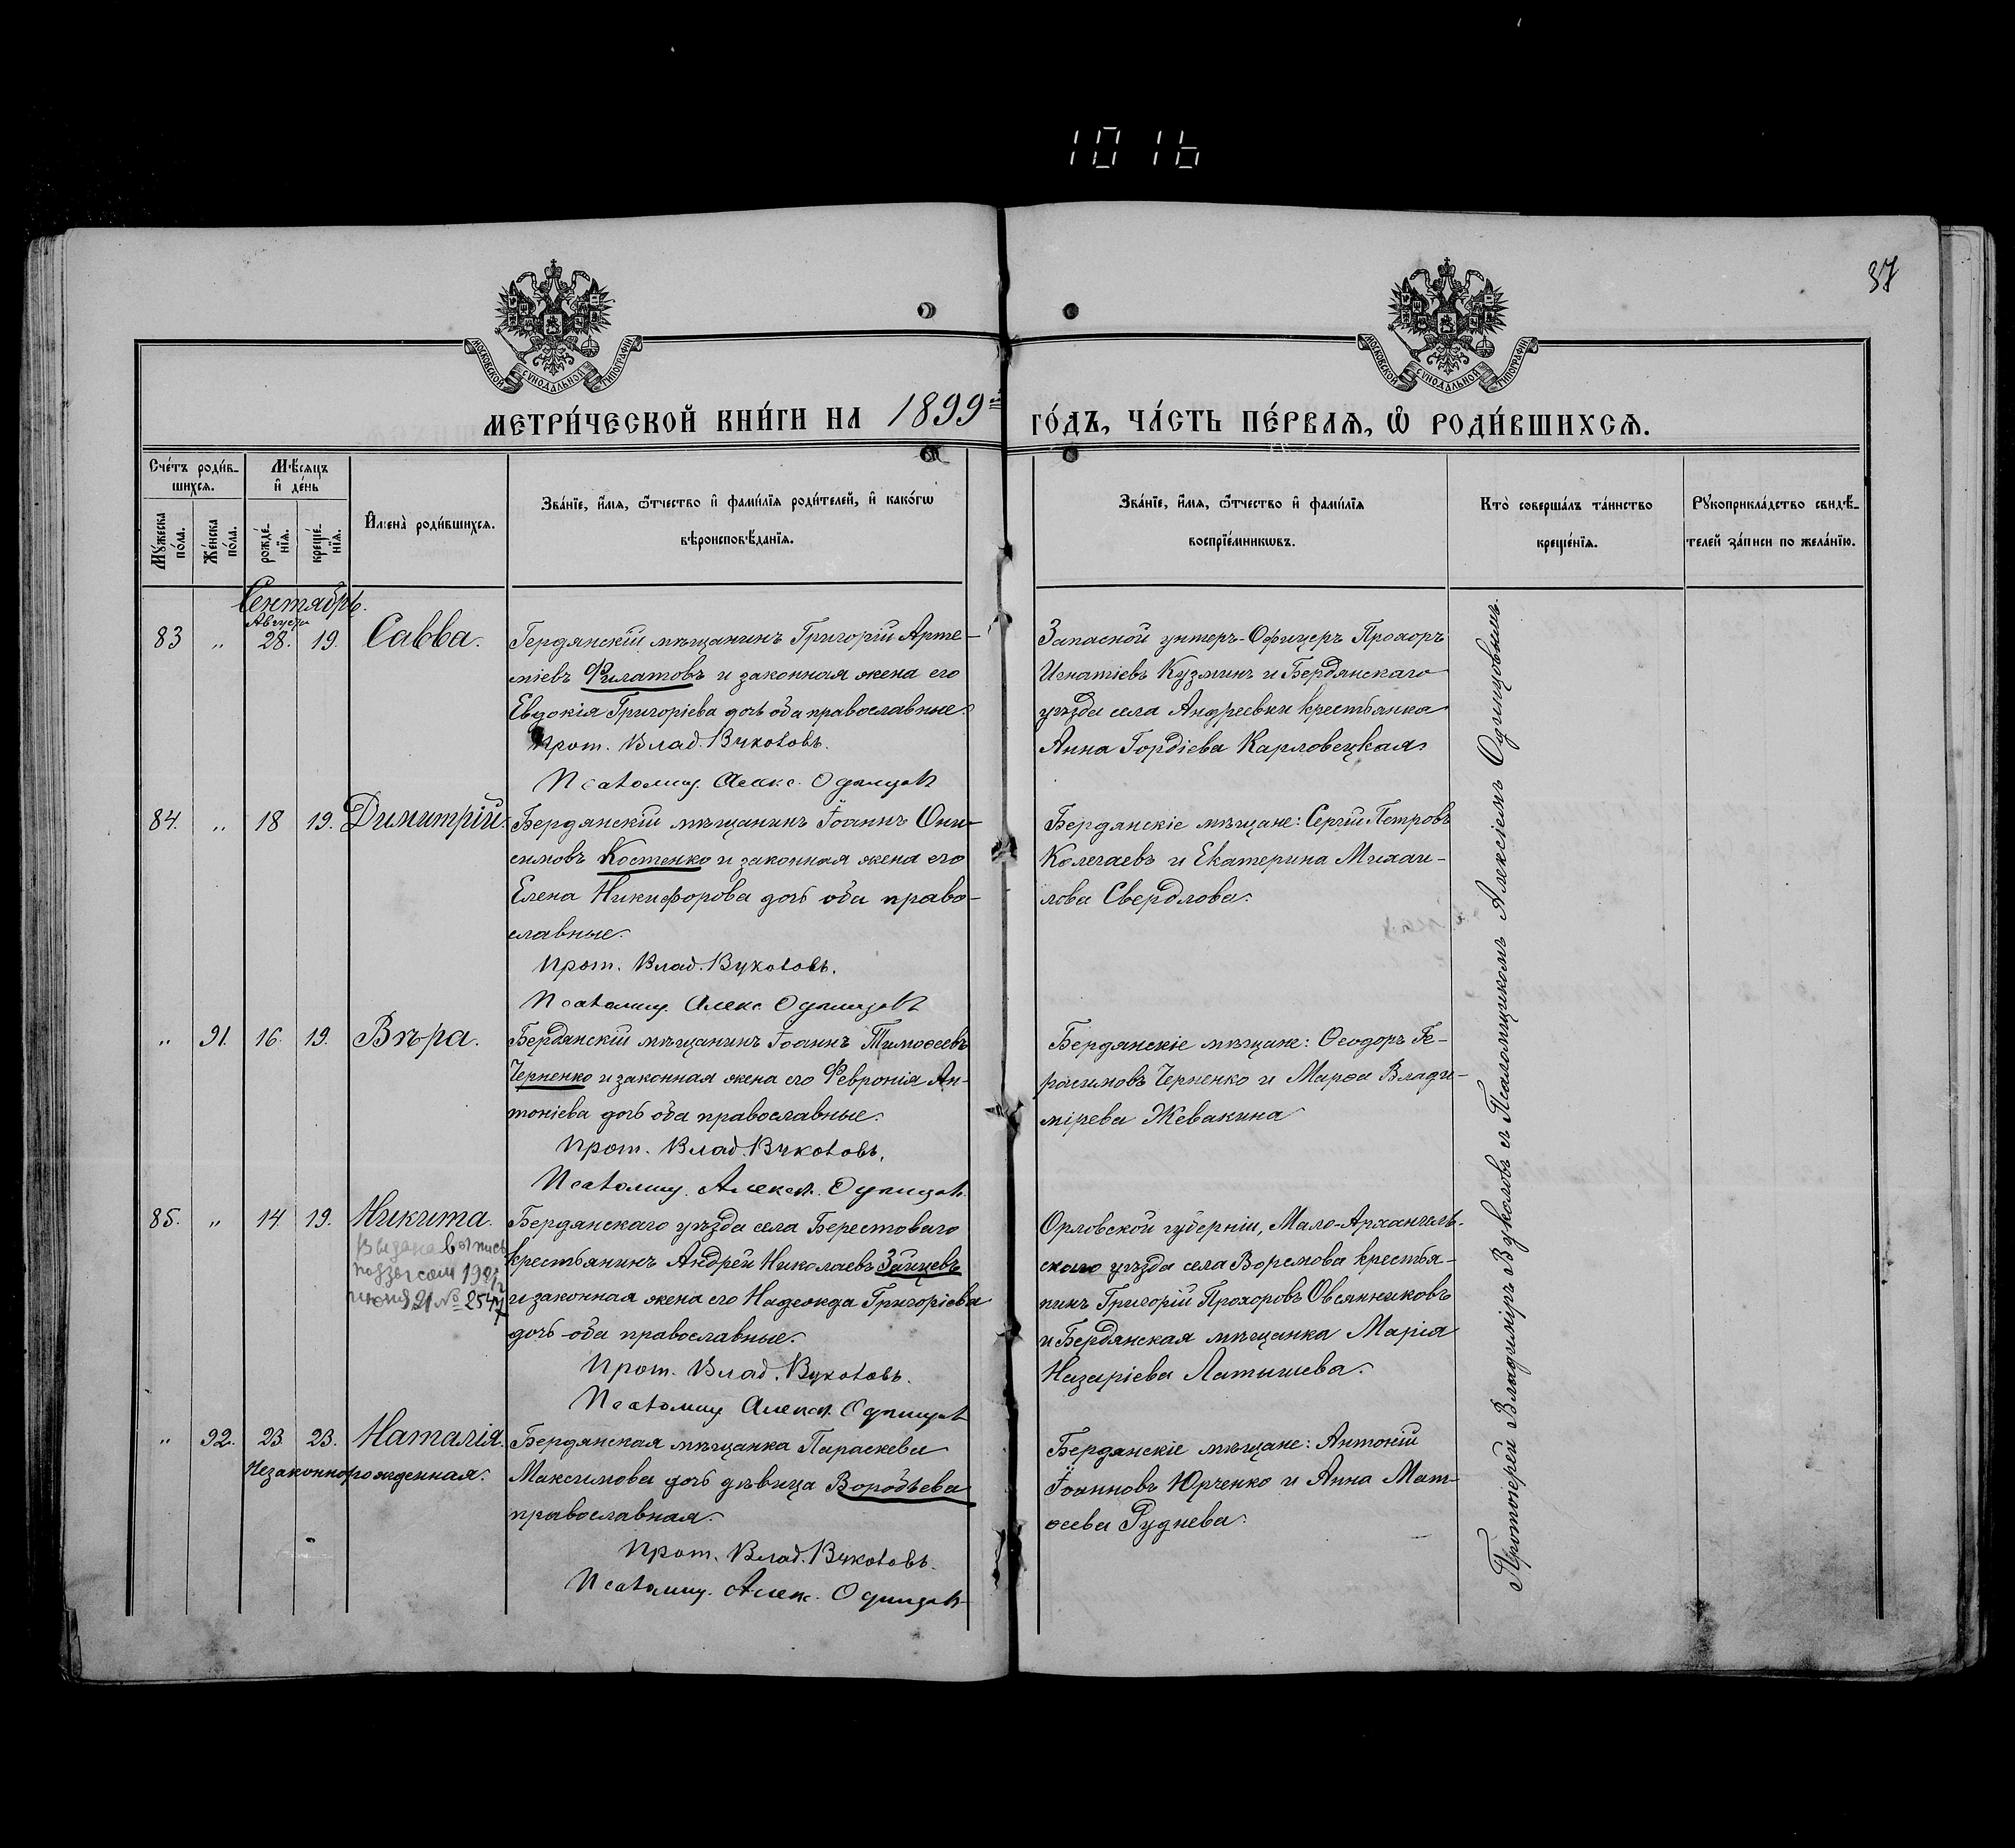 1016
37
МОСКОВСКОЙ СѴНОДАЛЬНОЙ ТИПОГРАФІИ
МОСКОВСКОЙ СѴНОДАЛЬНОЙ ТИПОГРАФІИ
МЕТРИ́ЧЕСКОЙ КНИ́ГИ НА 1899й ГО́ДЪ, ЧА́СТЬ ПЕ́РВАѦ, Ѽ РОДИ́ВШИХСѦ.
Сче́тъ роди́в-
шихсѧ.
Мꙋ́жеска по́ла.
Же́нска по́ла.
Мѣ́сяцъ
и҆ де́нь
рожде́-
нїѧ.
креще́-
нїѧ.
И҆мена̀ роди́вшихсѧ.
Зва́нїе, и҆́мѧ, ѻ҆́тчество и҆ фами́лїѧ роди́телей, и҆ како́гѡ
вѣроисповѣ́данїѧ.
Зва́нїе, и҆́мѧ, ѻ҆́тчество и҆ фами́лїѧ
воспрїе́мникѡвъ.
Кто̀ соверша́лъ та́инство
креще́нїѧ.
Рꙋкоприкла́дство свидѣ́-
телей за́писи по жела́нїю.
Сентябрь.
Августа
83 " 28. 19. Савва.
Бердянскій мѣщанинъ Григорій Арте-
міевъ Филатовъ и законная жена его
Евдокія Григоріева дочь оба православные.
Прот. Влад. Вуколовъ.
Псаломщ. Алекс. Одинцовъ
Запасной унтеръ-Офицеръ Прохоръ
Игнатіевъ Кузминъ и Бердянскаго
уѣзда села Андреевки крестьянка
Анна Гордіева Карловецкая
84. " 18 19. Димитрій.
Бердянскій мѣщанинъ Іоаннъ Они-
симовъ Костенко и законная жена его
Елена Никифорова дочь оба право-
славные.
Прот. Влад. Вуколовъ.
Псаломщ. Алекс. Одинцовъ
Бердянскіе мѣщане: Сергій Петровъ
Колечаевъ и Екатерина Михаи-
лова Свердлова.
" 91. 16. 19. Вѣра.
Бердянскій мѣщанинъ Іоаннъ Тимоѳеевъ
Черненко и законная жена его Февронія Ан-
тоніева дочь оба православные.
Прот. Влад. Вуколовъ.
Псаломщ. Алекс. Одинцовъ.
Бердянскіе мѣщане: Ѳеодоръ Ге-
расимовъ Черненко и Марѳа Влади-
мірева Жевакина
85. " 14 19. Никита.
Выдана выпись
по 1921
июня 21 № 2547
Бердянскаго уѣзда села Берестоваго
крестьянинъ Андрей Николаевъ Зайцевъ
и законная жена его Надежда Григоріева
дочь оба православные.
Прот. Влад. Вуколовъ.
Псаломщ. Алекс. Одинцовъ
Орловской губерніи, Мало-Архангель-
скаго уѣзда села крестья-
нинъ Григорій Прохоровъ Овсянниковъ
и Бердянская мѣщанка Марія
Назаріева Латышева.
" 92. 23. 23. Наталія.
Незаконнорожденная.
Бердянская мѣщанка Параскева
Максимова дочь дѣвица Воробьева
православная.
Прот. Влад. Вуколовъ.
Псаломщ. Алекс. Одинцовъ
Бердянскіе мѣщане: Антоній
Іоанновъ Юрченко и Анна Мат-
ѳеева Руднева.
Протоіерей Владиміръ Вуколовъ съ Псаломщикомъ Алексіемъ Одинцовымъ.